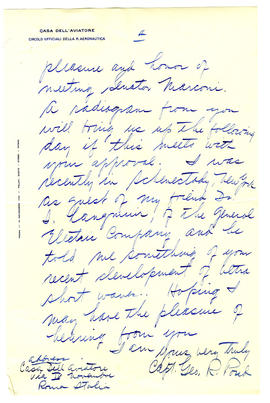 CASA DELL'AVIATORE
CIRCOLO UFFICIALI DELLA R. AERONAUTICA
pleasure and honor of
meeting Senator Marconi.
A radiogram from you
will bring us up the following
day if this meets with
your approval. I was
recently in Schenectady New York
as guest of my friend Dr.
I. Langmuir, of the General
Electric Company and he
told me something of your
recent development of ultra
short waves. Hoping I
may have the pleasure of
hearing from you
I am yours very truly
Capt. Geo. R.
address
Casa Dell Aviatore
Via IV Novembre
Roma Italia